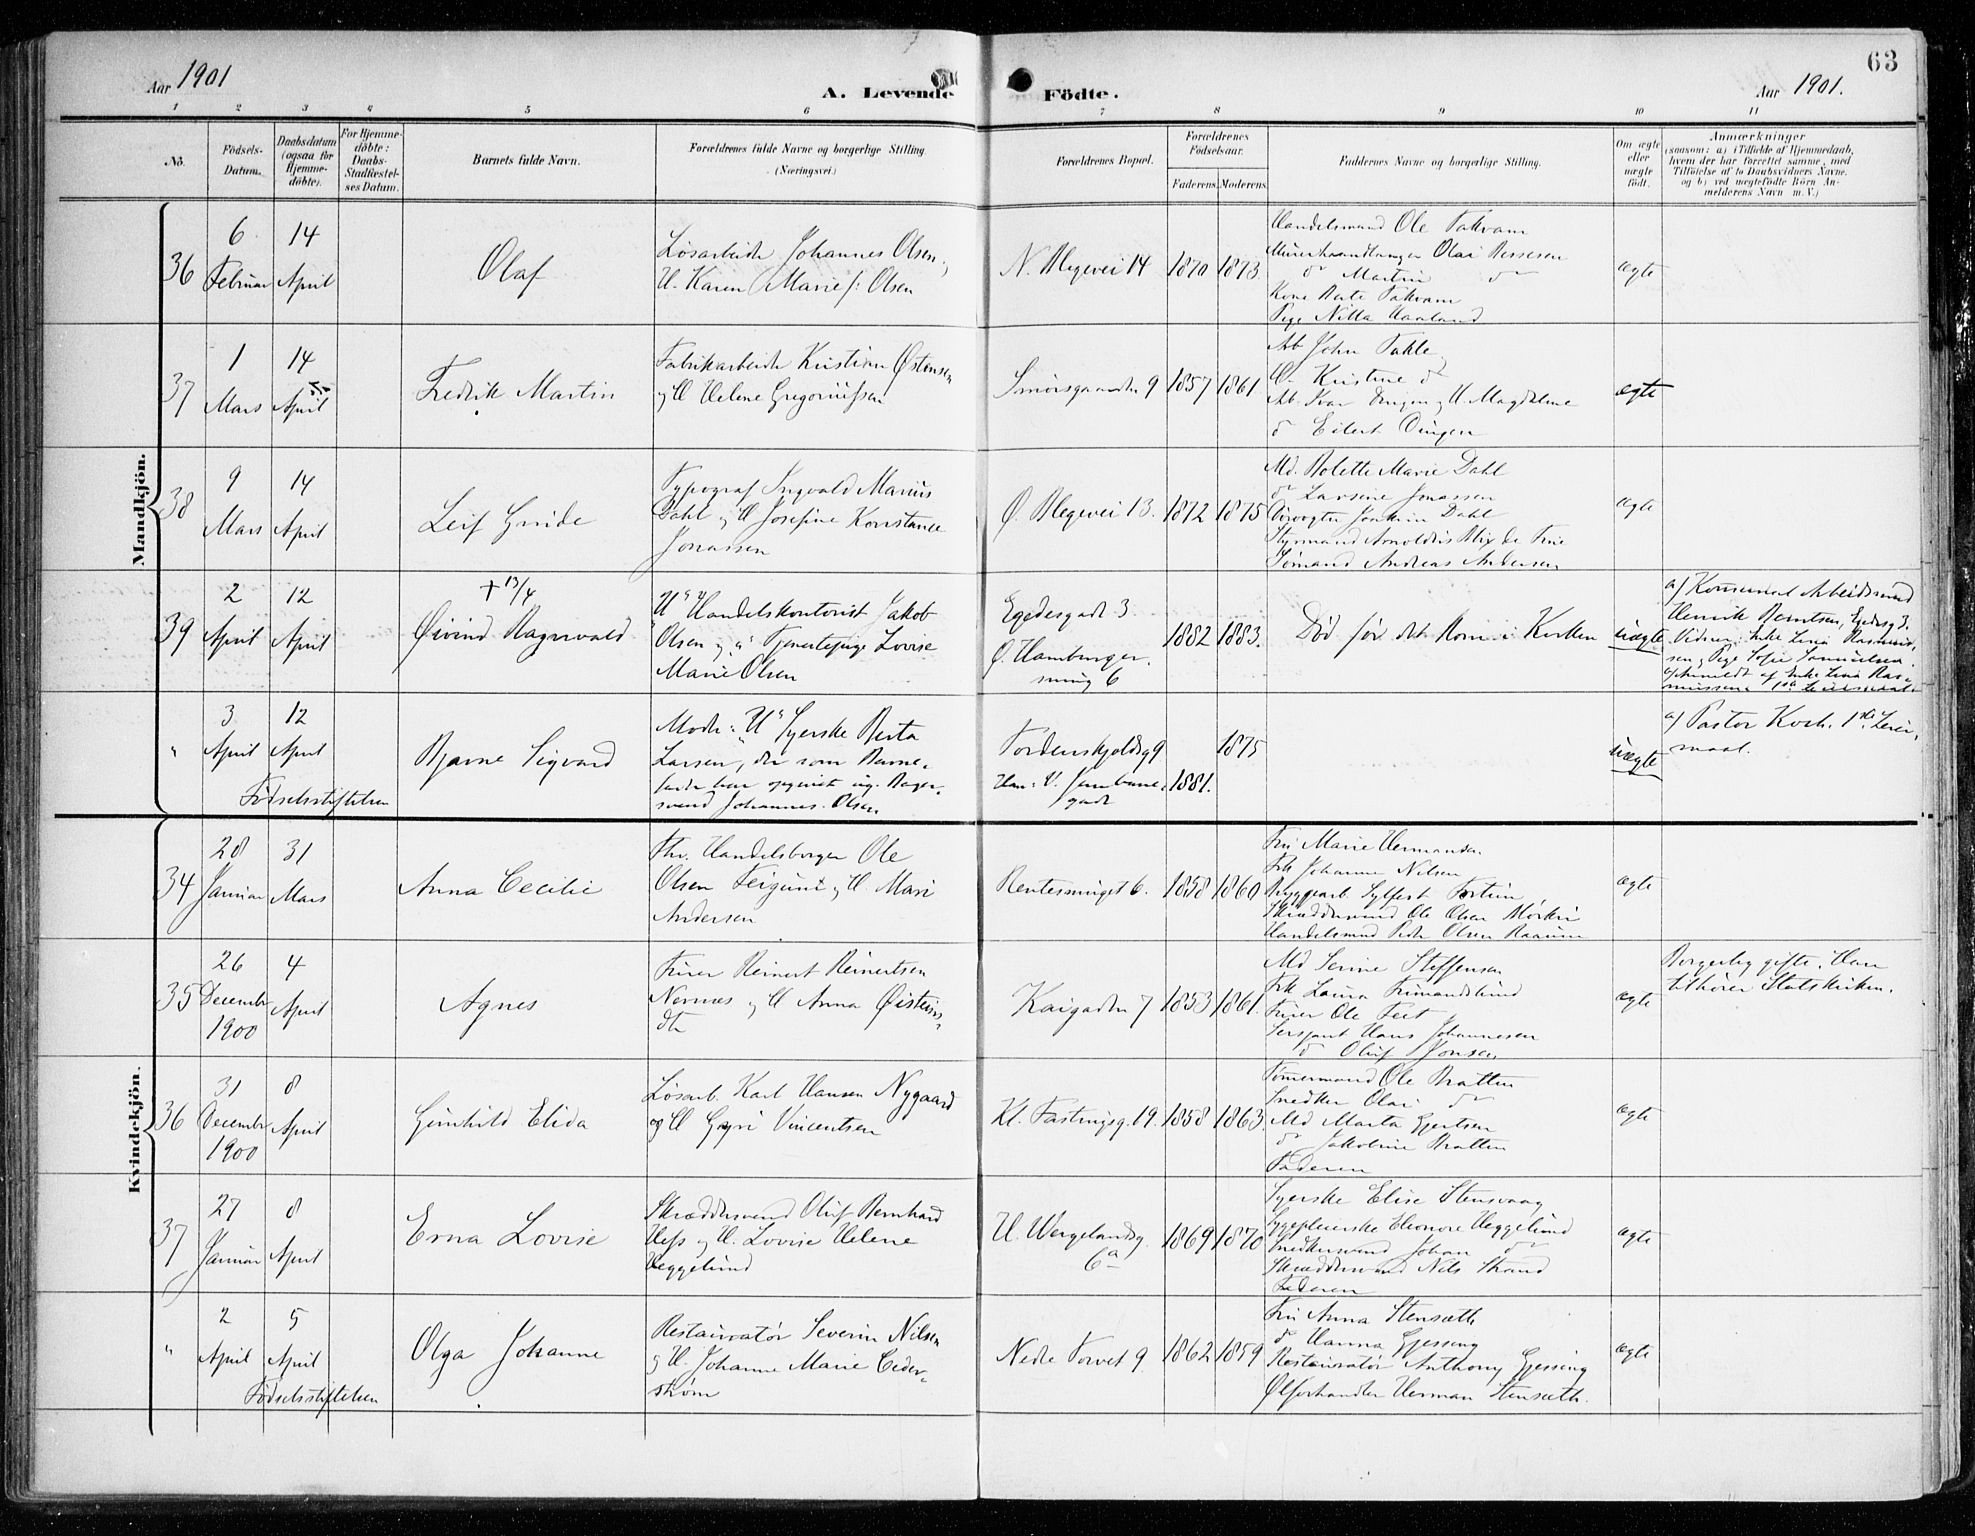 63
Aar 1901
A. Levende Födte.
Aar 1901.
1 2 3 4 5 6 7 8 9 10 11
No.
Födsels-Datum.
Daabsdatum (ogsaa for Hjemme-døbte).
For Hjemme-døbte: Daabs-Stadfæstel-ses Datum.
Barnets fulde Navn.
Forældrenes fulde Navne og borgerlige Stilling. (Næringsvei.)
Forældrenes Bopæl.
Forældrenes Födselsaar.
Faderens. Moderens.
Faddernes Navne og borgerlige Stilling.
Om ægte eller uægte født.
Anmærkninger
(saasom: a) i Tilfælde af Hjemmedaab,
hvem der har forrettet samme, med
Tilføielse af to Daabsvidners Navne.
og b) ved uægtefödte Börn An-
melderens Navn m. V.)
Mandkjön.
36
6 Februar
14 April
Olaf
Løsarbeider Johannes Olsen,
H. Karen Marie f: Olsen
N. Blegevei 14
1870 1873.
Handelsmand Ole Takvam
Murerhaandlanger Olai Bessesen
do Martin do
Kone Berte Takvam
Pige Nilla Haaland
ægte
37
1 Mars
14 April
Fredrik Martin
Fabrikarbeider Kristian Østensen
og H Helene Gregoriussen
Smørsgaarden 9
1857 1861
Arb John Takle
H. Kristine do
Arb. Ivar Dingen og H Magdalene
do Eilert Dingen
ægte
38
9 Mars
14 April
Leif Gunde
Typograf Ingvald Marius
Dahl og H Josefine Konstance
Jonassen
Ø. Blegevei 13.
1872 1875
Md. Bolette Marie Dahl
do Larsine Jonassen
Joakim Dahl
Styrmand Arnoldus Blix de Fine
Sømand Andreas Andersen
ægte
39
2 April
12 April
+ 13/4
Øivind Ragnvald
U" Handelskontorist Jakob
Olsen og " Tjenestepige Lovise
Marie Olsen
Egedesgade 3.
Ø. Hamburger-
smug 6
1882 1883.
Død før det kom i Kirken
uægte
a) Konsumal Arbeidsmand
Henrik Berntsen, Egedesg 3.
Vidner: Enke Lina Rasmus-
sen, Pige Sofie Samuelsen.
opkmeldt af Enke Lina Ras-
mussen. 1ste Leiermaal
"
3 April
12 April
Fødselsstiftelsen
Bjarne Sigvard
Moder: U" Syerske Berta
Larsen, der som Barne-
fader har opgivet ug. Bager-
svend Johannes Olsen
Tordenskjoldsg 9
Han: V. Jernbane-
gade
1881. 1875
uægte
a) Pastor Koch. 1ste Leier-
maal.
Kvindekjön.
34
28 Januar
31 Mars
Anna Cecilie
Fhv. Handelsborger Ole
Olsen Feigum og H. Mari
Andersen
Rentesmuget 6.
1858 1860
Fru Marie Hermansen
Frk Johanne Nilsen
Bryggearb. Sylfest Fortun
Skræddersvend Ole Olsen Mørkri
Handelsmand Peder Olsen Raaum
ægte
35
26 December 1900
4 April
Agnes
Furer Reinert Reinertsen
Nernæs og H Anna Øistens-
dtr
Kaigaden 7
1853 1861.
Md Serine Steffensen
Frk Laura Frimandslund
Furer Ole Feet
Sersjant Hans Johannesen
do Oluf Jonsen
ægte
Borgerlig gifte. Han
tilhører Statskirken.
36
31 December 1900
8 April
Gunhild Elida
Løsarb. Karl Hansen Nygaard
og H Guri Vincentsen
Kl. Fastingsg. 19.
1858 1863.
Tømmermand Ole Bratten
Snedker Olai do
Md Marta Gjertsen
do Jakobine Bratten
Faderen
ægte
37
27 Januar
8 April
Erna Lovise
Skræddersvend Oluf Bernhard
Hess og H. Lovise Helene
Heggelund
H. Wergelandsg.
6a
1869 1870
Syerske Elise Stensvaag
Sygepleierske Eleonore Heggelund
Snedkersvend Johan do
Skræddersvend Nils Strand
Faderen
ægte
"
2 April
5 April
Fødselsstiftelsen
Olga Johanne
Restauratør Severin Nilsen
og H. Johanne Marie Ceder-
strøm
Nedre Torvet 9.
1862 1859
Fru Anna Stensæth
do Hanna Gjessing
Restauratør Anthony Gjessing
Ølforhandler Herman Stensæth.
ægte